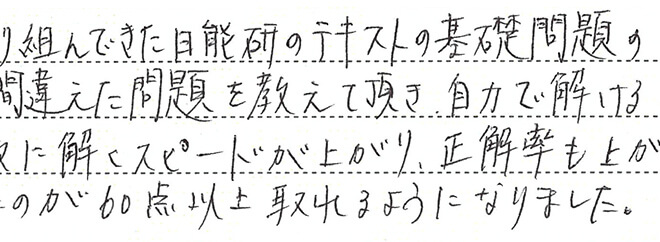 り組んできた日能研のテキストの基礎問題の
間違えた問題を教えて頂き、自力で解ける
に解くスピードが上がり、正解率も上が
のが60点以上取れるようになりました。